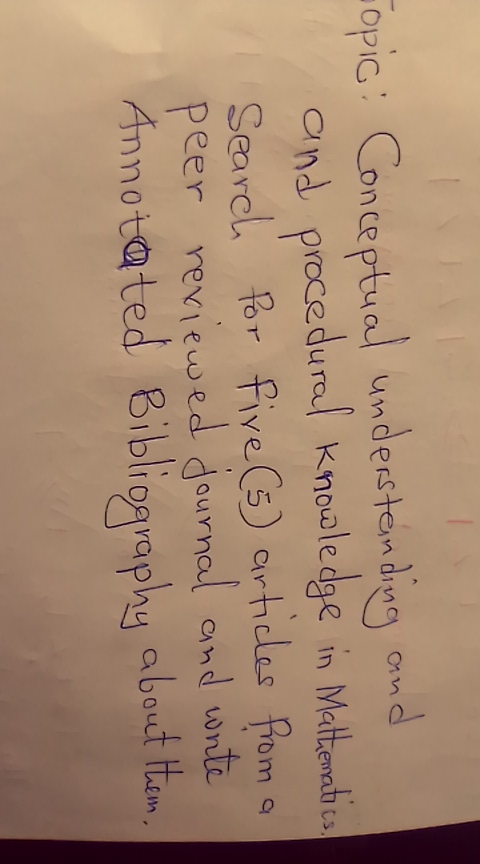 Topic: Conceptual understanding and
and procedural knowledge in Mathematics.
Search for five(5) articles from a
peer reviewed journal and write
Annotated Bibliography about them.